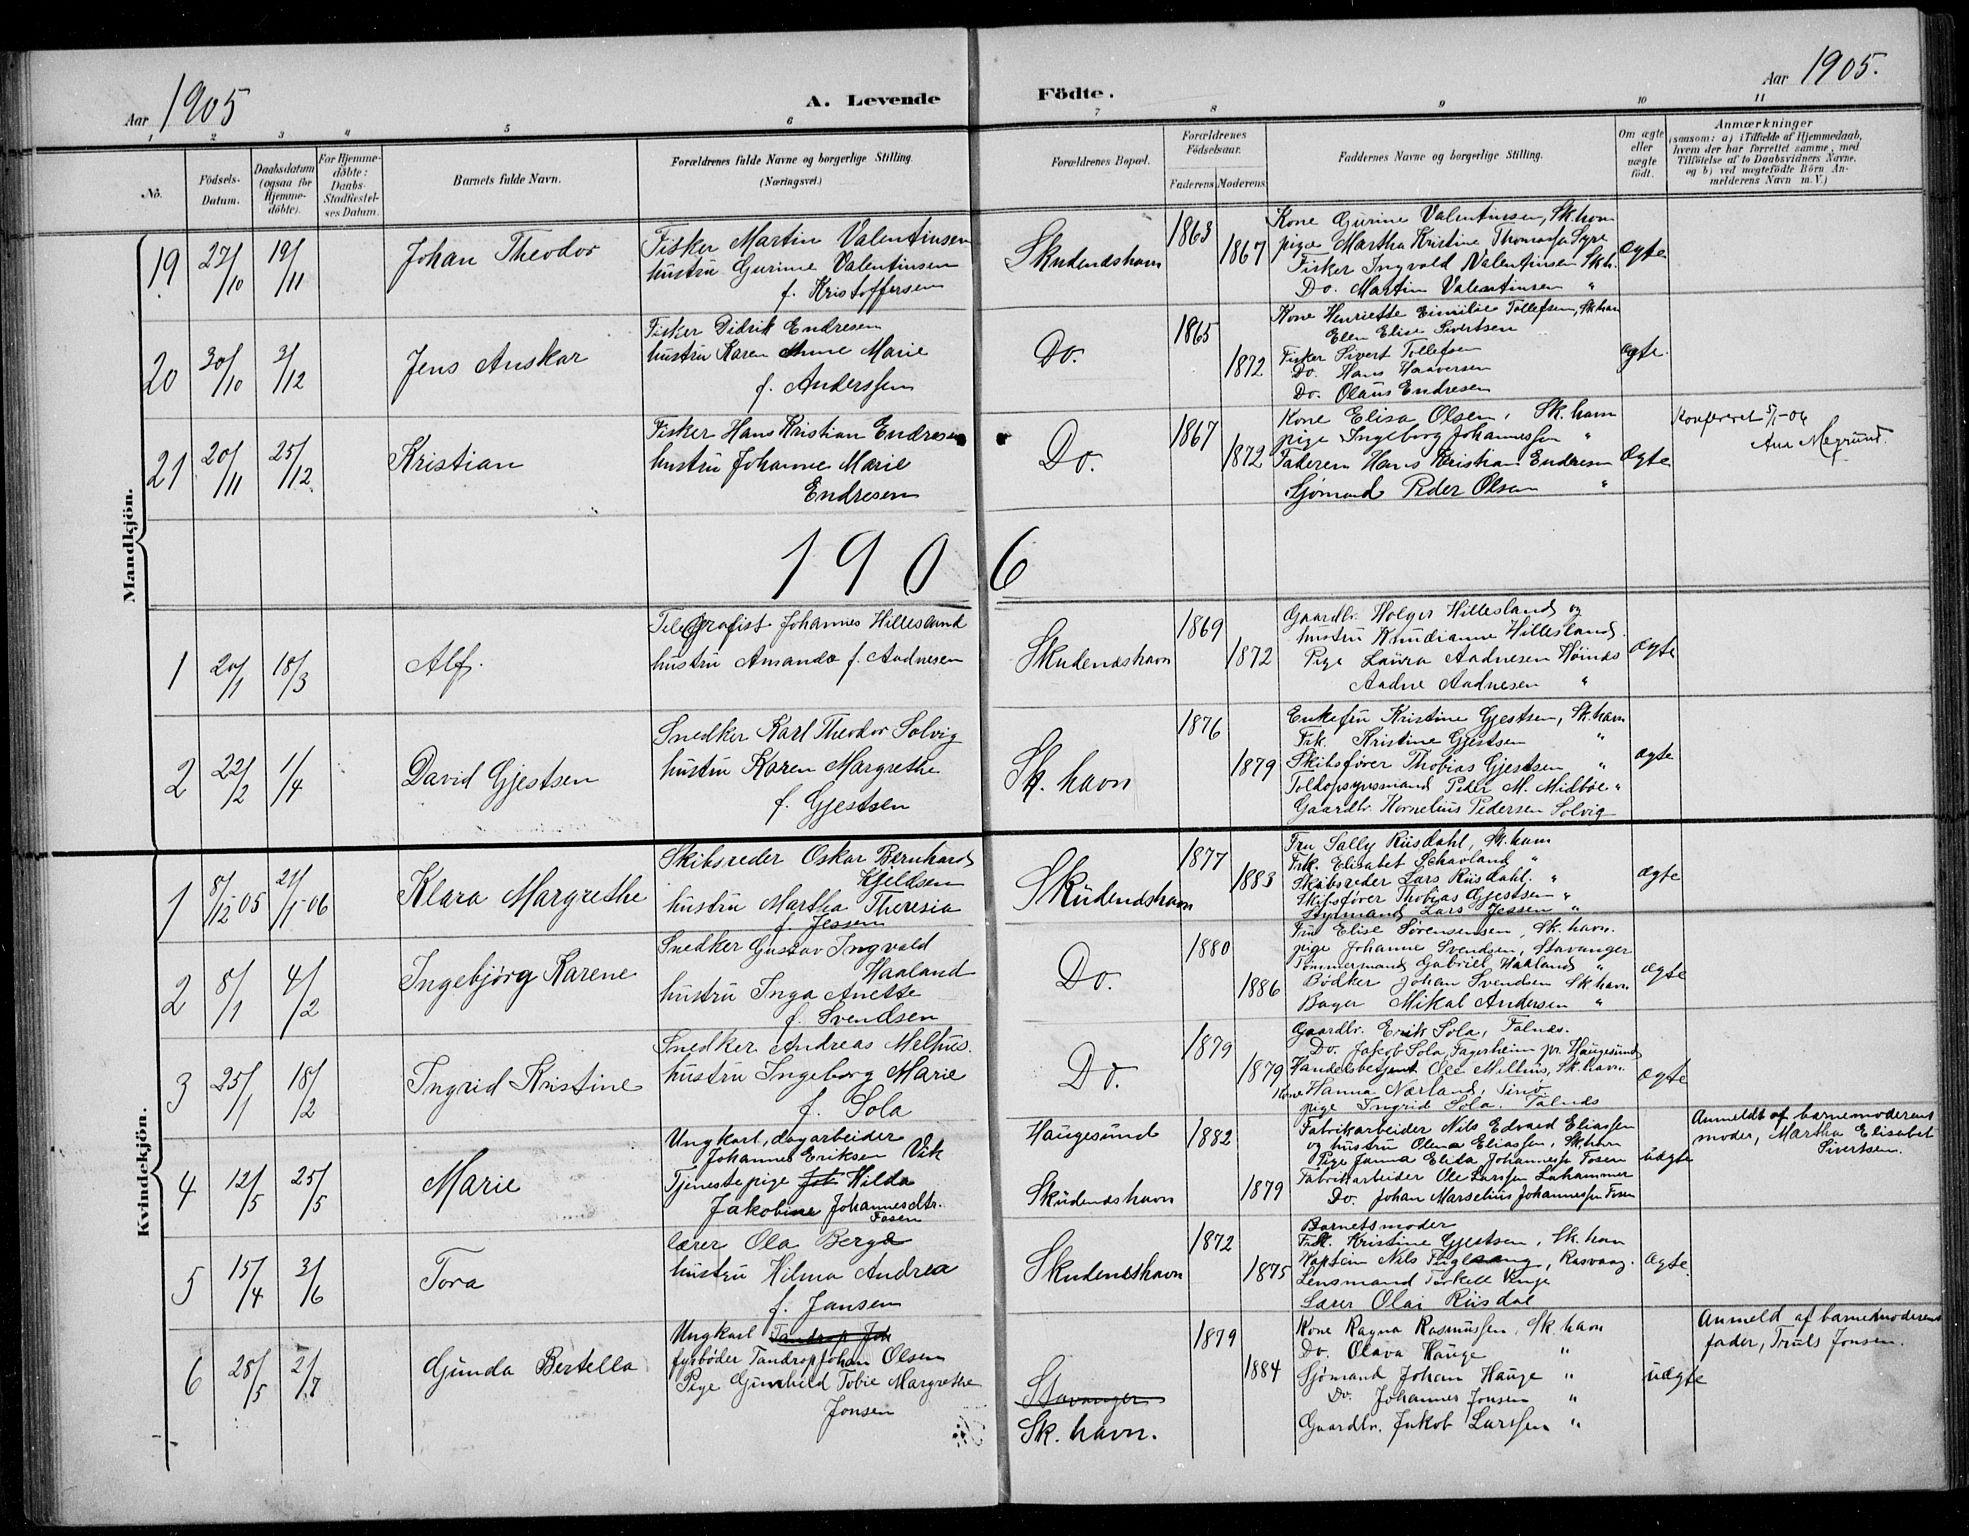 Aar 1905
A. Levende
Födte.
Aar 1905.
1 2 3 4 5 6 7 8 9 10 11
No.
Födsels-
Datum.
Daabsdatum
(ogsaa for
Hjemme-
döbte).
For Hjemme-
döbte:
Daabs-
Stadfæstel-
ses Datum.
Barnets fulde Navn.
Forældrenes fulde Navne og borgerlige Stilling.
(Næringsvei.)
Forældrenes Bopæl.
Forældrenes
Födselsaar.
Faderens Moderens
Faddernes Navne og borgerlige Stilling.
Om ægte
eller
uægte
födt.
Anmærkninger
(saasom: a) i Tilfælde af Hjemmedaab,
hvem der har forrettet samme, med
Tilföielse af to Daabsvidners Navne,
og b) ved uægtefödte Börn An-
melderens Navn m. V.)
Mandkjön.
19 27/10 19/11 Johan Theodor
Fisker Martin Valentinsen
hustru Gurine Valentinsen
f. Kristoffersen
Skudeneshavn
1863
1867
Kone Gurine Valentinsen, Sk.havn
pige Martha Kristine Syre
Fisker Ingvald Valentinsen Skh.
Do. Martin Valentinsen "
ægte
20 30/10 3/12 Jens Anskar
Fisker Didrik Endresen
hustru Karen Anne Marie
f. Anderssen
Do.
1865
1872
Kone Henriette Emilie Tollefsen, Sk.havn
Elen Elise Sivertsen
Fisker Sivert Tollefsen
Do. Hans Haaversen
Do. Olaus Endresen
ægte.
21 20/11 25/12 Kristian
Fisker Hans Kristian Endresen
hustru Johanne Marie
Endresen
Do.
1867
1872
Kone Elisa Olsen, Sk.havn
pige Ingeborg Johannessen "
Faderen Hans Kristian Endresen
Sjømand Peder Olsen "
ægte
Konfereret 5/1-06
1906
1 20/1 18/3 Alf.
Telegrafist Johannes Hillesland
hustru Amanda f. Aadnesen
Skudeneshavn
1869
1872
Gaardbr. Holger Hillesland og
hustru Knudianne Hillesland.
Pige Laura Aadnesen Høines
Aadne Aadnesen "
ægte
2 22/2 1/4 David Gjestsen
Snedker Karl Theodor Solvig
hustru Karen Margrethe
f. Gjestsen
Sk. havn
1876
1879
Enkefru Kristine Gjestsen, Sk.havn
Frk. Kristine Gjestsen "
Skibsfører Thobias Gjestsen "
Toldopsynsmand Peder M. Midbøe "
Gaardbr. Kornelius Pedersen Solvig
ægte
Kvindekjön.
1 8/12 05 21/1-06 Klara Margrethe
Skibsreder Oskar Bernhard
Kjeldsen
hustru Martha Theresia
f. Jessen
Skudeneshavn
1877
1883
Fru Sally Riisdahl, Sk.havn
Frk. Elisabet Schavland "
Skibsreder Lars Riisdahl. "
Skibsfører Thobias Gjestsen "
Styrmand Lars Jessen "
ægte
2 8/1 4/2 Ingebjørg Karene
Snedker Gustav Ingvald
Haaland
hustru Inga Anette
f. Svendsen
Do.
1880
1886
Fru Elise Sørensen, Sk.havn.
pige Johanne Svendsen, Stavanger
Tømmermand Gabriel Haaland "
Bødker Johan Svendsen Sk.havn
Bager Mikal Andersen "
ægte
3 25/1 18/2 Ingrid Kristine
Snedker Andreas Melhus.
hustru Ingeborg Marie
f. Sola
Do.
1879
1879
Gaardbr. Erik Sola, Falnes.
Do. Jakob Sola, Fagerheim pr. Haugesund
Handelsbetjent Ole Milhus, Sk.havn.
Kone Hanna Nærland,
pige Ingrid Sola. Falnes
ægte
4 12/5 25/5 Marie
Ungkarl, dagarbeider
Johannes Eriksen Vik
Tjenestepige Joh Hilda
Jakobine Johannesdtr.
Fosen
Haugesund
Skudeneshavn
1882
1879
Fabrikarbeider Nils Edvard Eliassen
og hustru Olena Eliassen, Sk.havn
Pige Janna Elida Johannesse Fosen
Fabrikarbeider Ole Larssen Lahammer
Do. Johan Marselius Johannessen Fosen
uægte
Anmeldt af barnemoderens
moder, Martha Elisabet
Sivertsen.
5 15/4 3/6 Tora
lærer Ola Berge
hustru Hilma Andrea
f. Jansen
Skudeneshavn
1872
1875
Barnetsmoder
Frk. Kristine Gjestsen, Sk.havn
Kaptein Nils Fuglesang,
Lensmand Torkell Vinge
Lærer Olai Riisdal
ægte.
6 28/5 2/7 Gunda Bertella
Ungkarl Tandrop Joh
fyrbøder Tandrop Johan Olsen
Pige Gunhild Tobie Margrethe
Jonsen
Stavanger
Sk. havn.
1879
1884
Kone Ragna Rasmussen, Sk.havn
Do. Olava Hauge "
Sjømand Johan Hauge "
Do. Johannes Jonsen "
Gaardbr. Jakob Larssen "
uægte
Anmeld af barnemoderens
fader, Truls Jonsen.